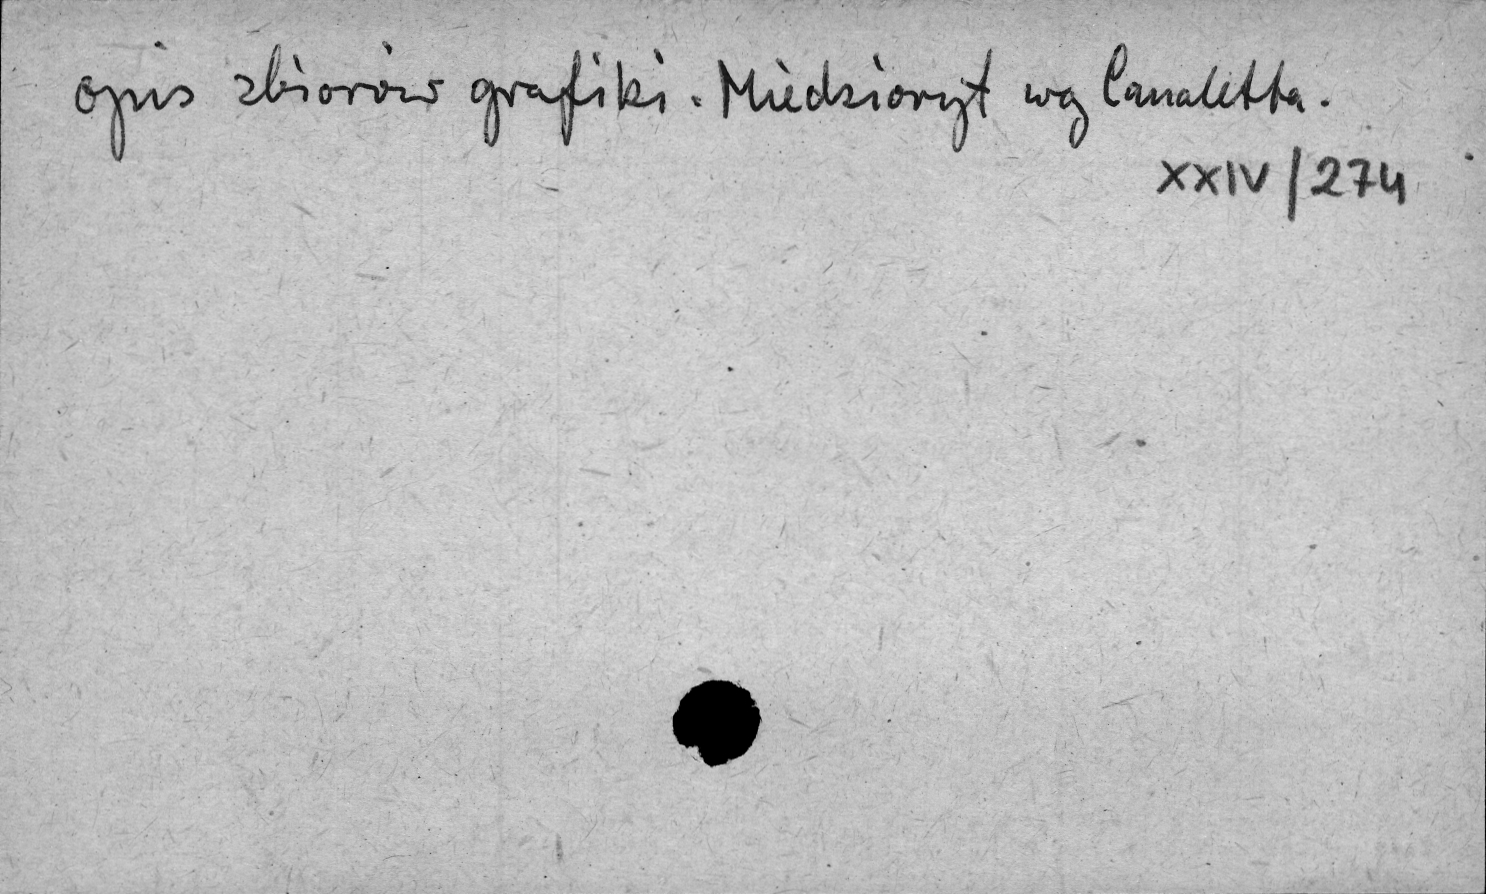 opis zbiorów grafiki. Miedzioryt wg Canaletta.
XXIV/274